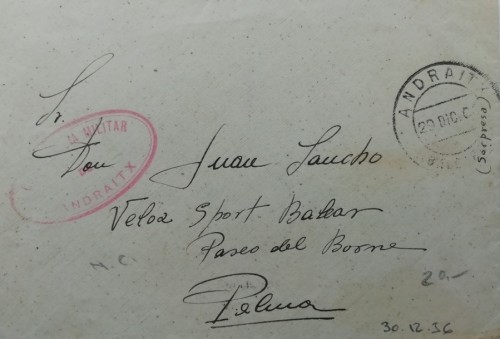 Sr.
Don Juan Sancho
Veloz Sport Balear
Paseo del Borne
Palma
MILITAR
ANDRAITX
ANDRAITX
29 DIC.
(Sorpresa)
20.-
30.12.36